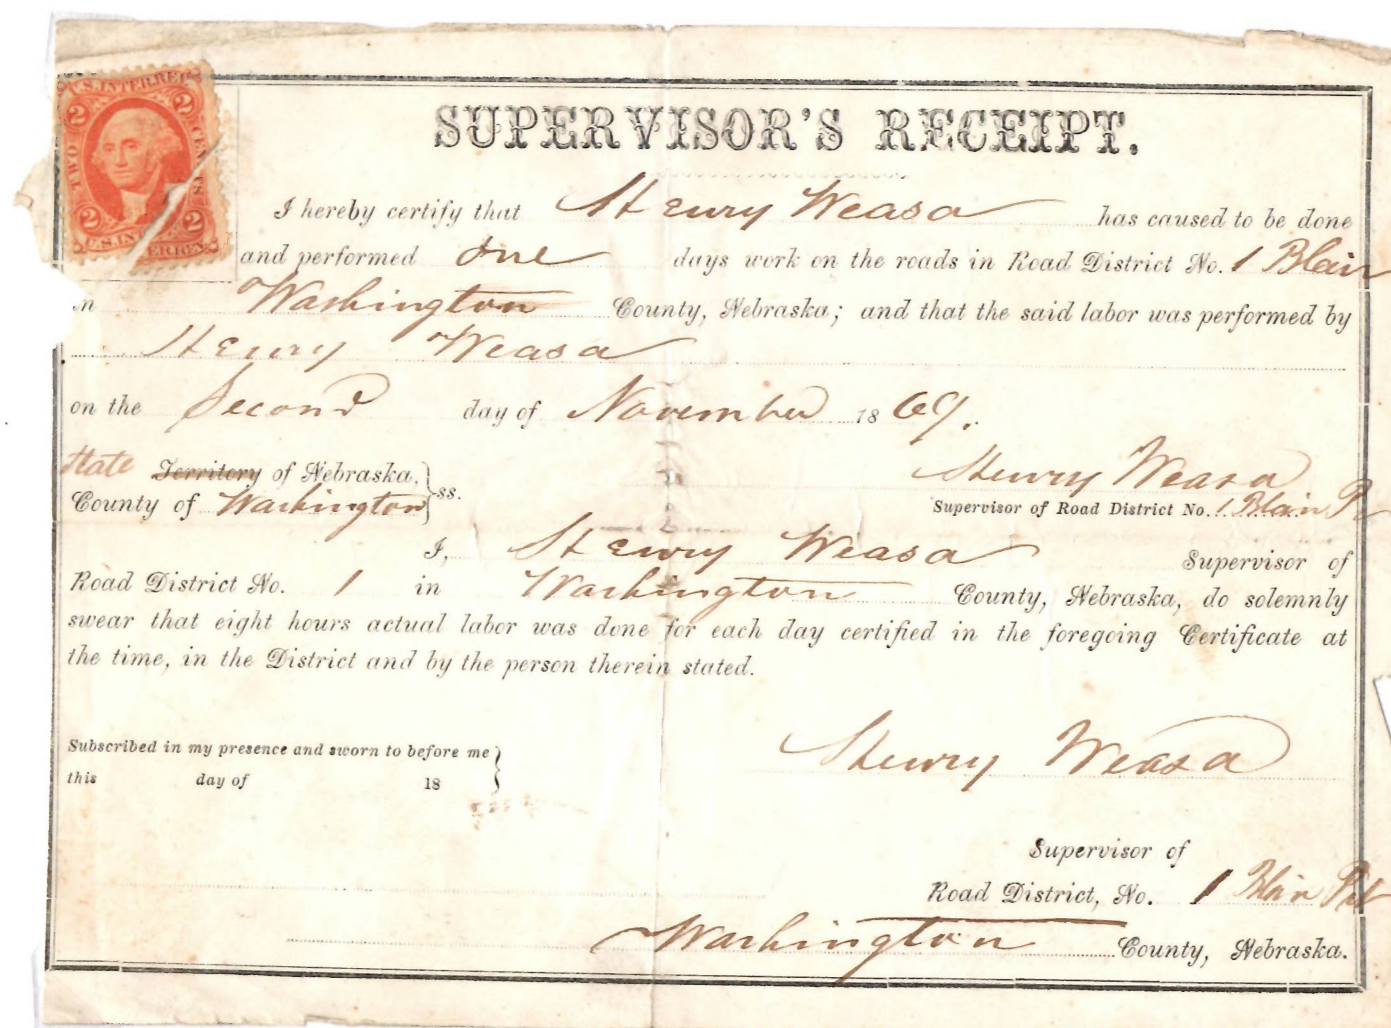 U.S. INTER. REV.
2 2
TWO CENTS
2 2
U.S. INTER. REV.
SUPERVISOR'S RECEIPT.
I hereby certify that Henry Weasa has caused to be done
and performed One days work on the roads in Road District No. 1 Blair
in Washington County, Nebraska; and that the said labor was performed by
Henry Weasa
on the Second day of November 1869.
State Territory of Nebraska, } ss.
County of Washington
Henry Weasa
Supervisor of Road District No. 1 Blair P
I, Henry Weasa Supervisor of
Road District No. 1 in Washington County, Nebraska, do solemnly
swear that eight hours actual labor was done for each day certified in the foregoing Certificate at
the time, in the District and by the person therein stated.
Subscribed in my presence and sworn to before me }
this day of 18
Henry Weasa
Supervisor of
Road District, No. 1 Blair
Washington County, Nebraska.